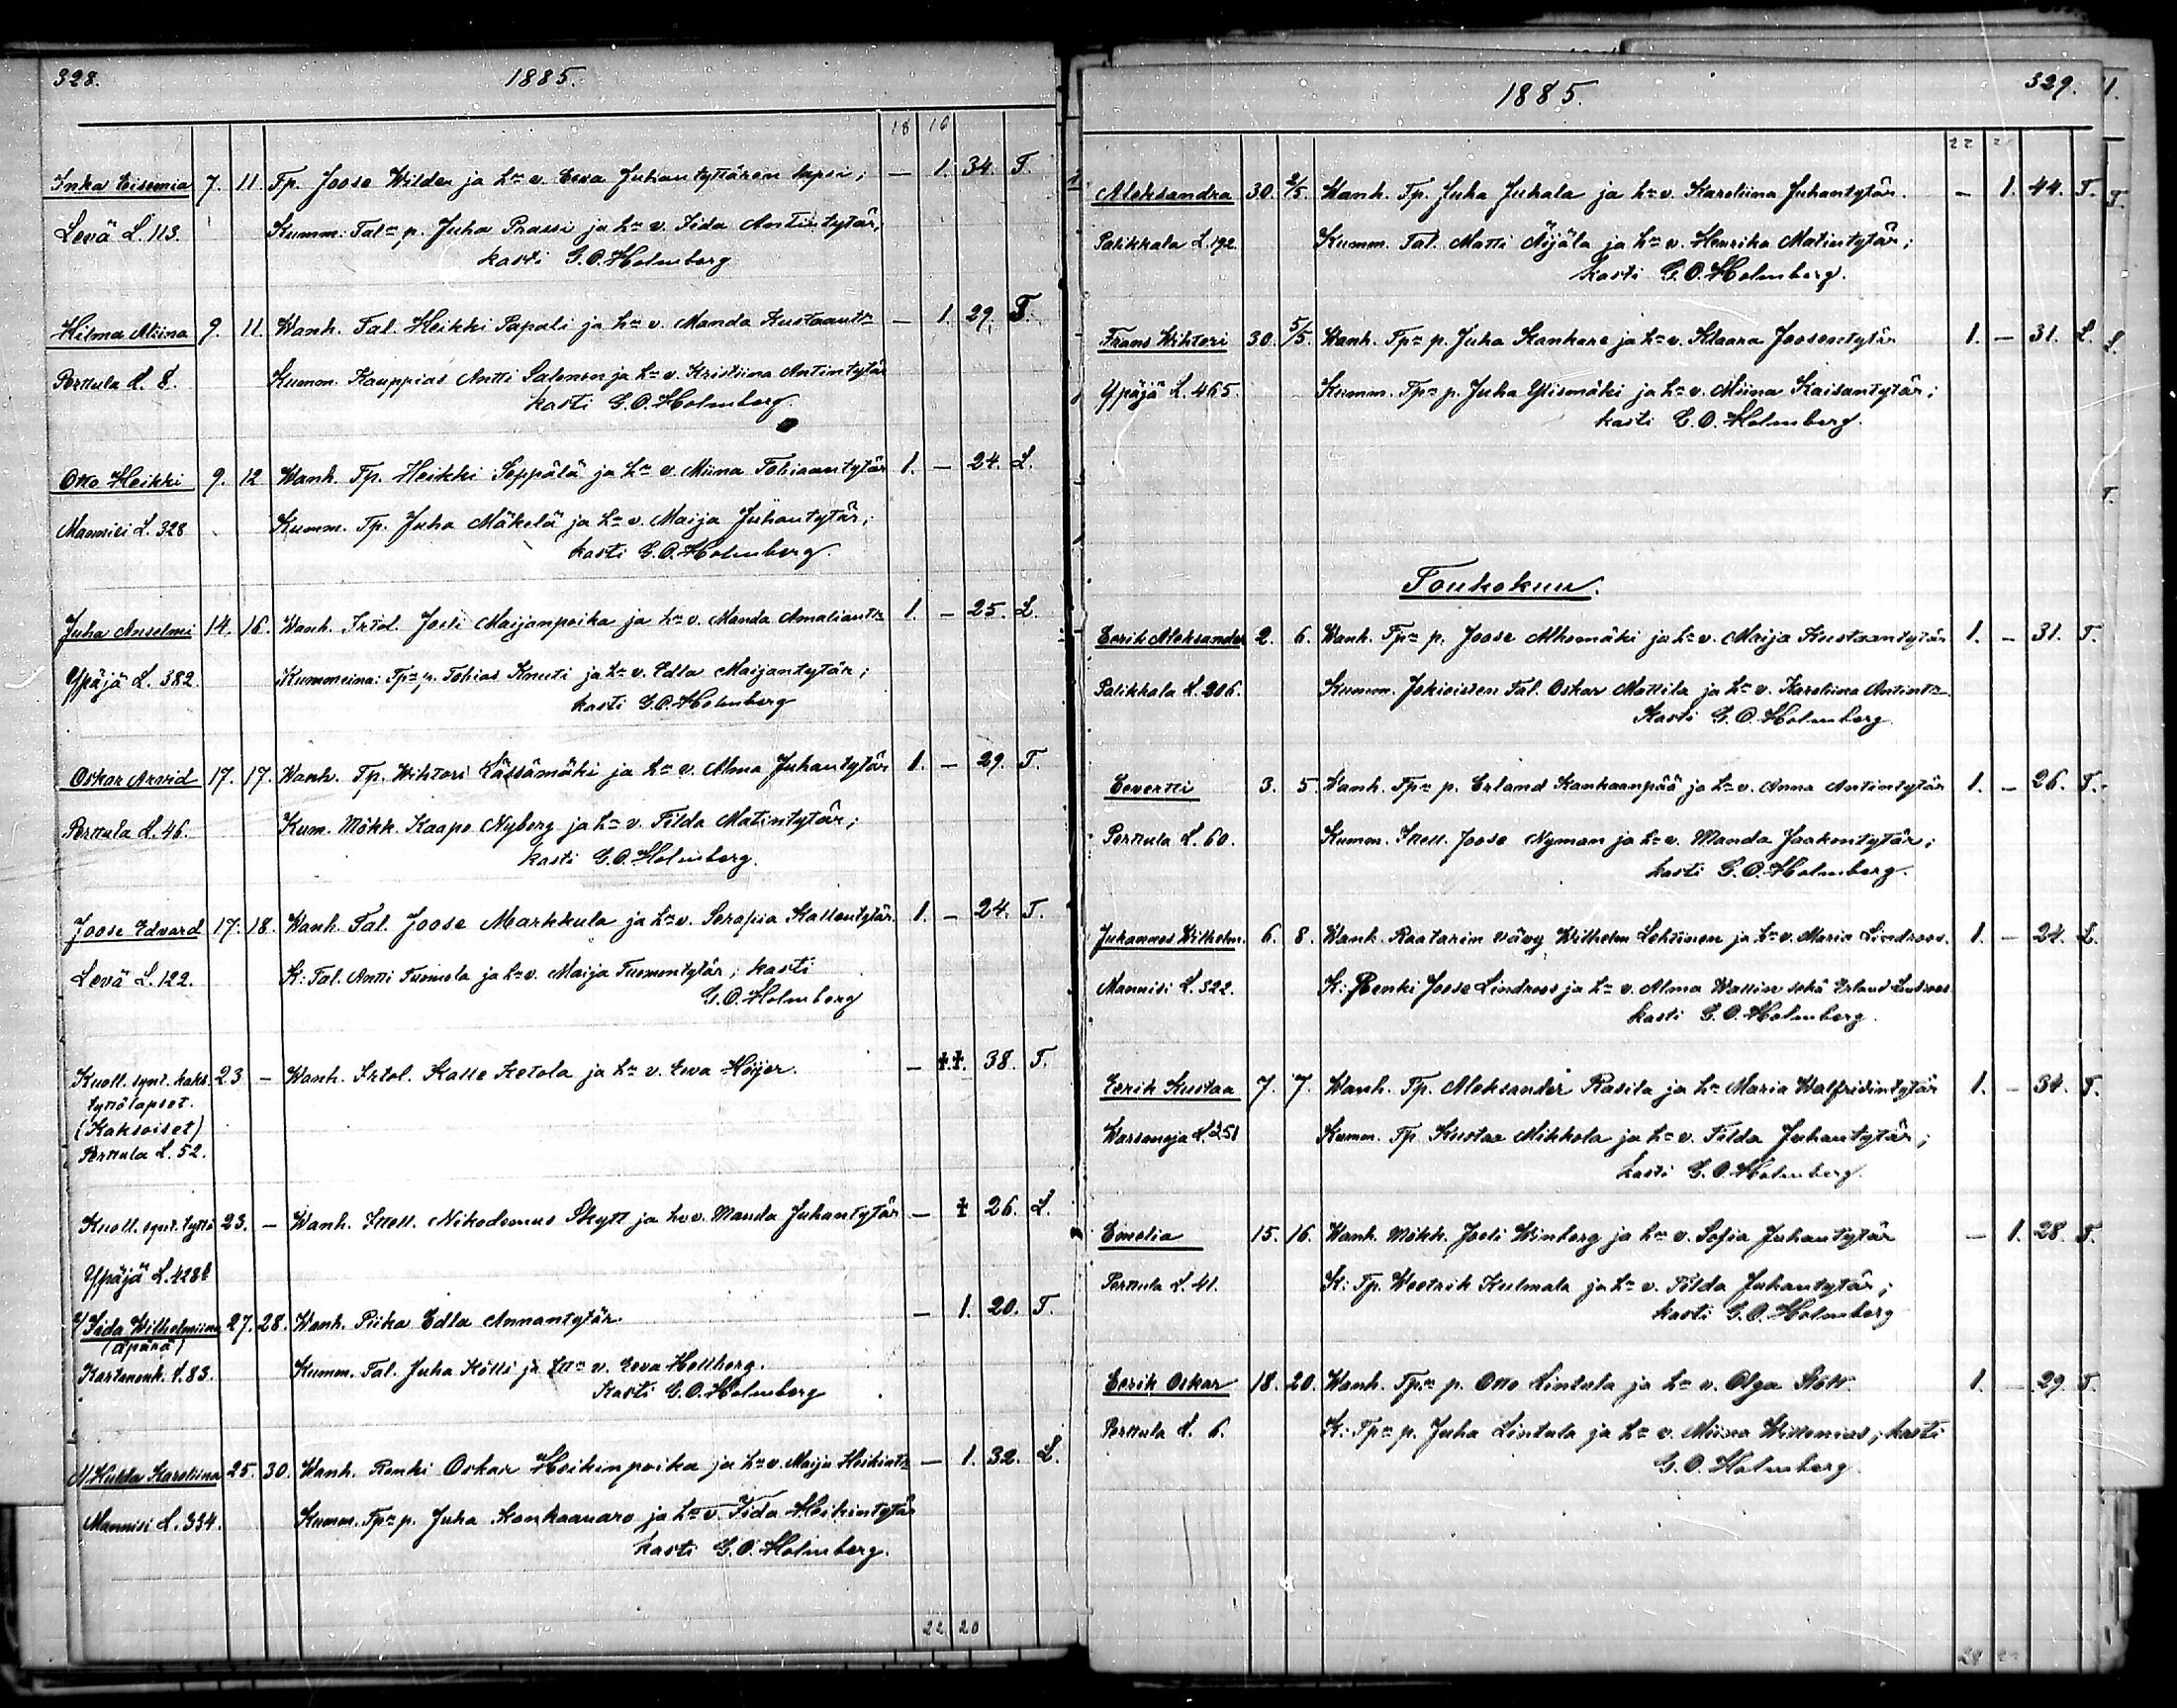 328.
1885.
18 16
Inka Eisemia 7. 11 Tp. Joose Wilder ja h:n v. Eeva Juhantyttären lapsi; — 1. 34. T.
Levä L. 113. Kumm: Tal:n p. Juha Prassi ja h:n v. Iida Antintytär,
kasti G.O. Holmberg
Hilma Miina 9. 11. Wanh. Tal. Heikki Papali ja h:n v. Manda Kustaantr — 1. 29. T.
Perttula L. 8. Kumm. Kauppias Antti Salonen ja h:n v. Kristiina Antintytär
kasti G.O. Holmberg
Otto Heikki 9. 12 Wanh. Tp. Heikki Seppälä ja h:n v. Miina Tobiaantytär 1. — 24. L.
Mannisi L. 328 Kumm. Tp. Juha Mäkelä ja h:n v. Maija Juhantytär;
kasti G.O. Holmberg.
Juha Anselmi 14. 16. Wanh. Irtol. Joeli Maijanpoika ja h:n v. Manda Amaliantr 1. — 25. L.
Ypäjä L. 382. Kummeina: Tp:n p. Tobias Knuti ja h:n v. Edla Maijantytär;
kasti G.O. Holmberg
Oskar Arvid 17. 17. Wanh. Tp. Wihtori Lässämäki ja h:n v. Alma Juhantytär 1. — 29. T.
Perttula L. 46. Kum. Mökk. Kaapo Nyberg ja h:n v. Tilda Matintytär;
kasti G.O. Holmberg.
Joose Edvard 17. 18. Wanh. Tal. Joose Markkula ja h:n v. Serafia Kallentytär 1. — 24. T.
Levä L. 122. K: Tal. Antti Tuomola ja h:n v. Maija Tuomontytär; kasti
G.O. Holmberg
Kuoll. synt. kaks 23 — Wanh. Irtol. Kalle Ketola ja h:n v. Eeva Höijer. — ‡.‡. 38. T.
tyttölapset.
(Kaksoiset)
Perttula L. 52.
Kuoll. synt. tyttö 23. — Wanh. Itsell. Nikodemus Skytt ja h:n v. Manda Juhantytär — ‡ 26. L.
Ypäjä L. 428b
Iida Wilhelmiina 27. 28. Wanh. Piika Edla Annantytär — 1. 20. T.
(äpärä)
Kartanonk. L. 83. Kumm. Tal. Juha Kölli ja h:n v. Eeva Hellberg.
Kasti G.O. Holmberg
Hulda Karoliina 25. 30. Wanh. Renki Oskar Heikinpoika ja h:n v. Maija Heikintr — 1. 32. L.
Mannisi L. 334. Kumm. Tp:n p. Juha Konkaanaro ja h:n v. Iida Heikintytär
kasti G.O. Holmberg.
22 20
1885.
329.
22
Aleksandra 30. 2/5. Wanh. Tp. Juha Juhala ja h:n v. Karoliina Juhantytär. — 1. 44. T.
Palikkala L. 192. Kumm. Tal. Matti Äijälä ja h:n v. Henrika Matintytär;
kasti G.O. Holmberg.
Frans Wihtori 30. 5/5. Wanh. Tp:n p. Juha Kanhare ja h:n v. Klaara Joosentytär 1. — 31. L.
Ypäjä L. 465. Kumm. Tp:n p. Juha Ylismäki ja h:n v. Miina Kaisantytär;
kasti G.O. Holmberg.
Toukokuu.
Eerik Aleksander 2. 6. Wanh. Tp:n p. Joose Alhomäki ja h:n v. Maija Kustaantytär 1. — 31. T.
Palikkala L. 206. Kumm. Jokioisten Tal. Oskar Mattila ja h:n v. Karoliina Antintr
Kasti G.O. Holmberg
Eevertti 3. 5. Wanh. Tp:n p. Erland Kanhaanpää ja h:n v. Anna Antintytär 1. — 26. T.
Perttula L. 60. Kumm. Itsell. Joose Nyman ja h:n v. Manda Jaakontytär;
kasti G.O. Holmberg.
Juhannes Wilhelm. 6. 8. Wanh. Raatarin vävy Wilhelm Lehtinen ja h:n v. Maria Lindroos. 1. — 24. L.
Mannisi L. 322. K: Renki Joose Lindroos ja h:n v. Alma Wallin sekä Erland Lindroos
kasti G.O. Holmberg.
Eerik Kustaa 7. 7. Wanh. Tp. Aleksander Rasila ja h:n Maria Walfridintytär 1. — 34. T.
Warsanoja L. 251 Kumm. Tp Kustaa Mikkola ja h:n v. Tilda Juhantytär;
kasti G.O. Holmberg.
Emelia 15. 16. Wanh. Mökk. Joeli Winberg ja h:n v. Sofia Juhantytär — 1. 28. T.
Perttula L. 41. K: Tp. Weetrik Kulmala ja h:n v. Tilda Juhantytär;
kasti G.O. Holmberg
Eerik Oskar 18. 20. Wanh. Tp:n p. Otto Lintula ja h:n v. Olga 1. — 29 T.
Perttula L. 6. K: Tp:n p. Juha Lintula ja h:n v. Miina Willenius; kasti
G.O. Holmberg.